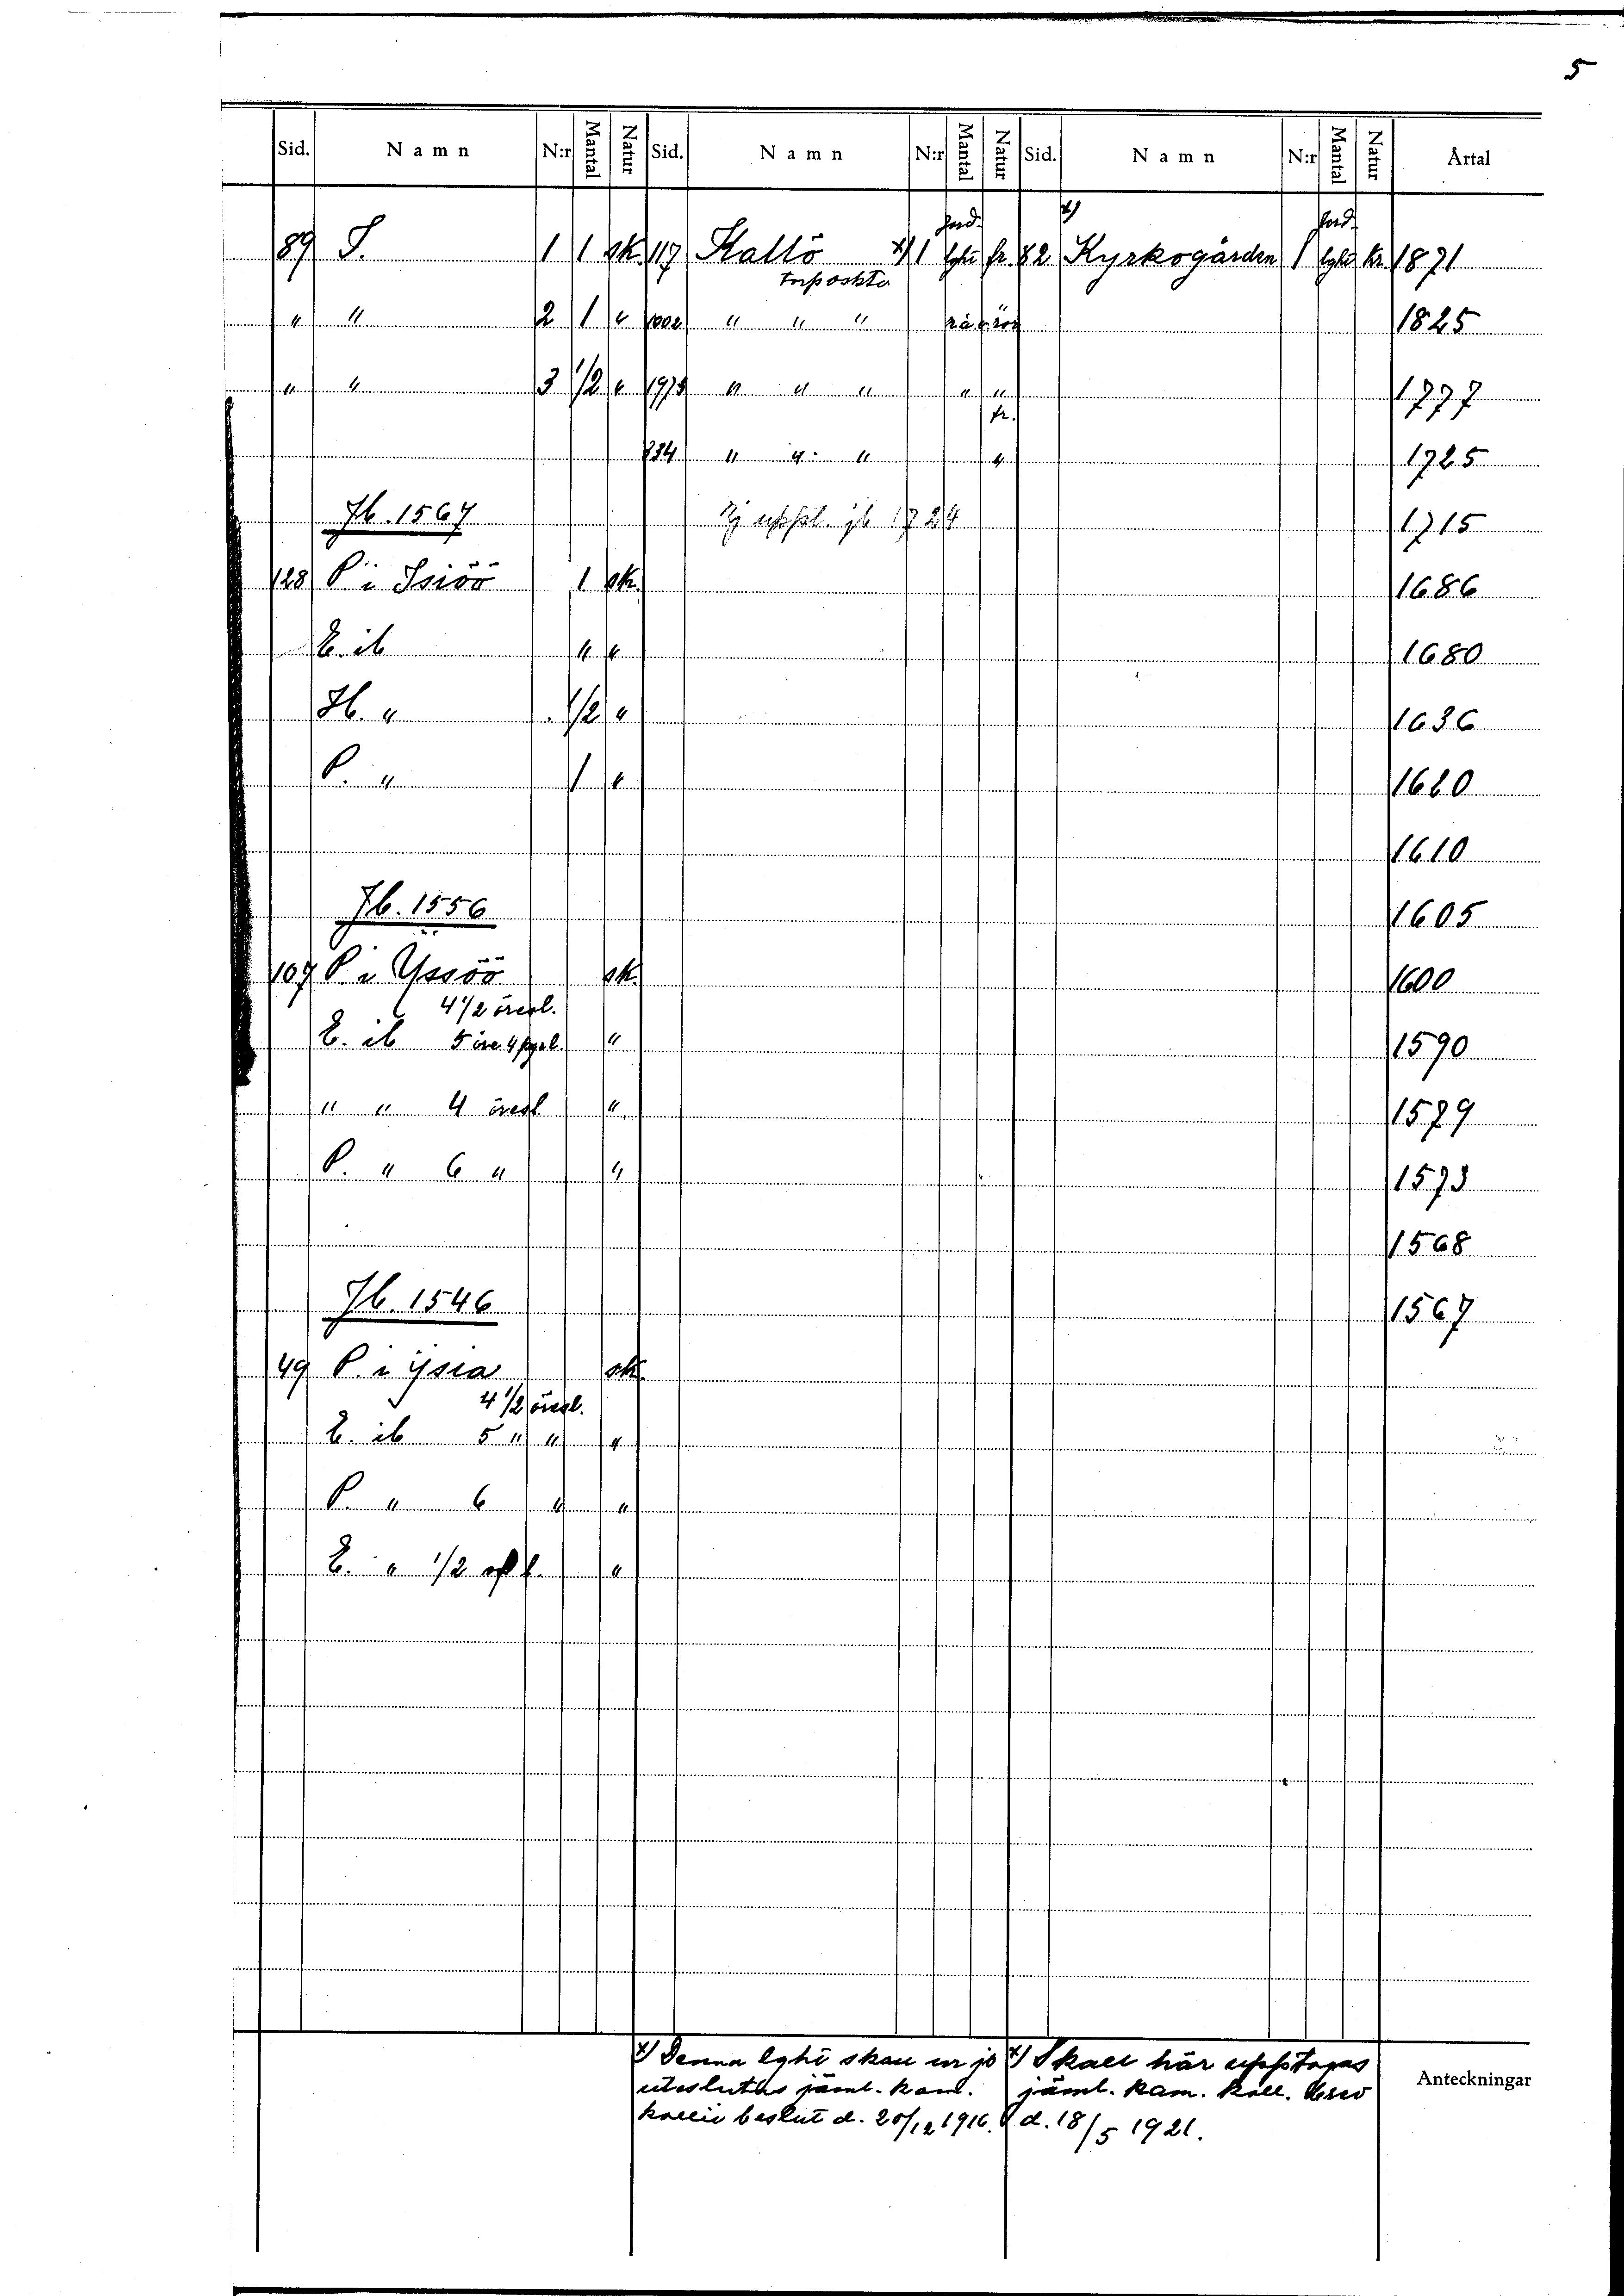 5
Sid. Namn N:r Mantal Natur Sid. Namn N:r Mantal Natur Sid. Namn N:r Mantal Natur Årtal
89 S. 1 1 sk. 117 Kallö x) 1 fr. 82 x) Kyrkogården 1 kr. 1871
torposkta
" " 2 1 " 1002 " " " rå o. rör 1825
" " 3 1/2 " 1973 " " " " " 1777
fr.
834 " " " " 1725
Jb. 1567 Ej uppt. jb 1724 1715
128 P. i Isiöö 1 sk. 1686
E. ib " " 1680
H. " 1/2 " 1636
P. " 1 " 1620
1610
Jb. 1556 1605
107 P. i Yssöö sk. 1600
4 1/2 öresl.
E. ib 5 öre 4 pgl. " 1590
" " 4 öresl " 1579
P. " 6 " " 1573
1568
Jb. 1546 1567
49 P. i ysia sk.
4 1/2 öresl.
E. ib 5 " " "
P. " 6 " "
E. " 1/2 "
x) Denna lght skall ur jb
uteslutas jäml. kam.
kollii beslut d. 20/12 1916.
x) Skall här upptagas
jäml. kam. koll. brev
d. 18/5 1921.
Anteckningar